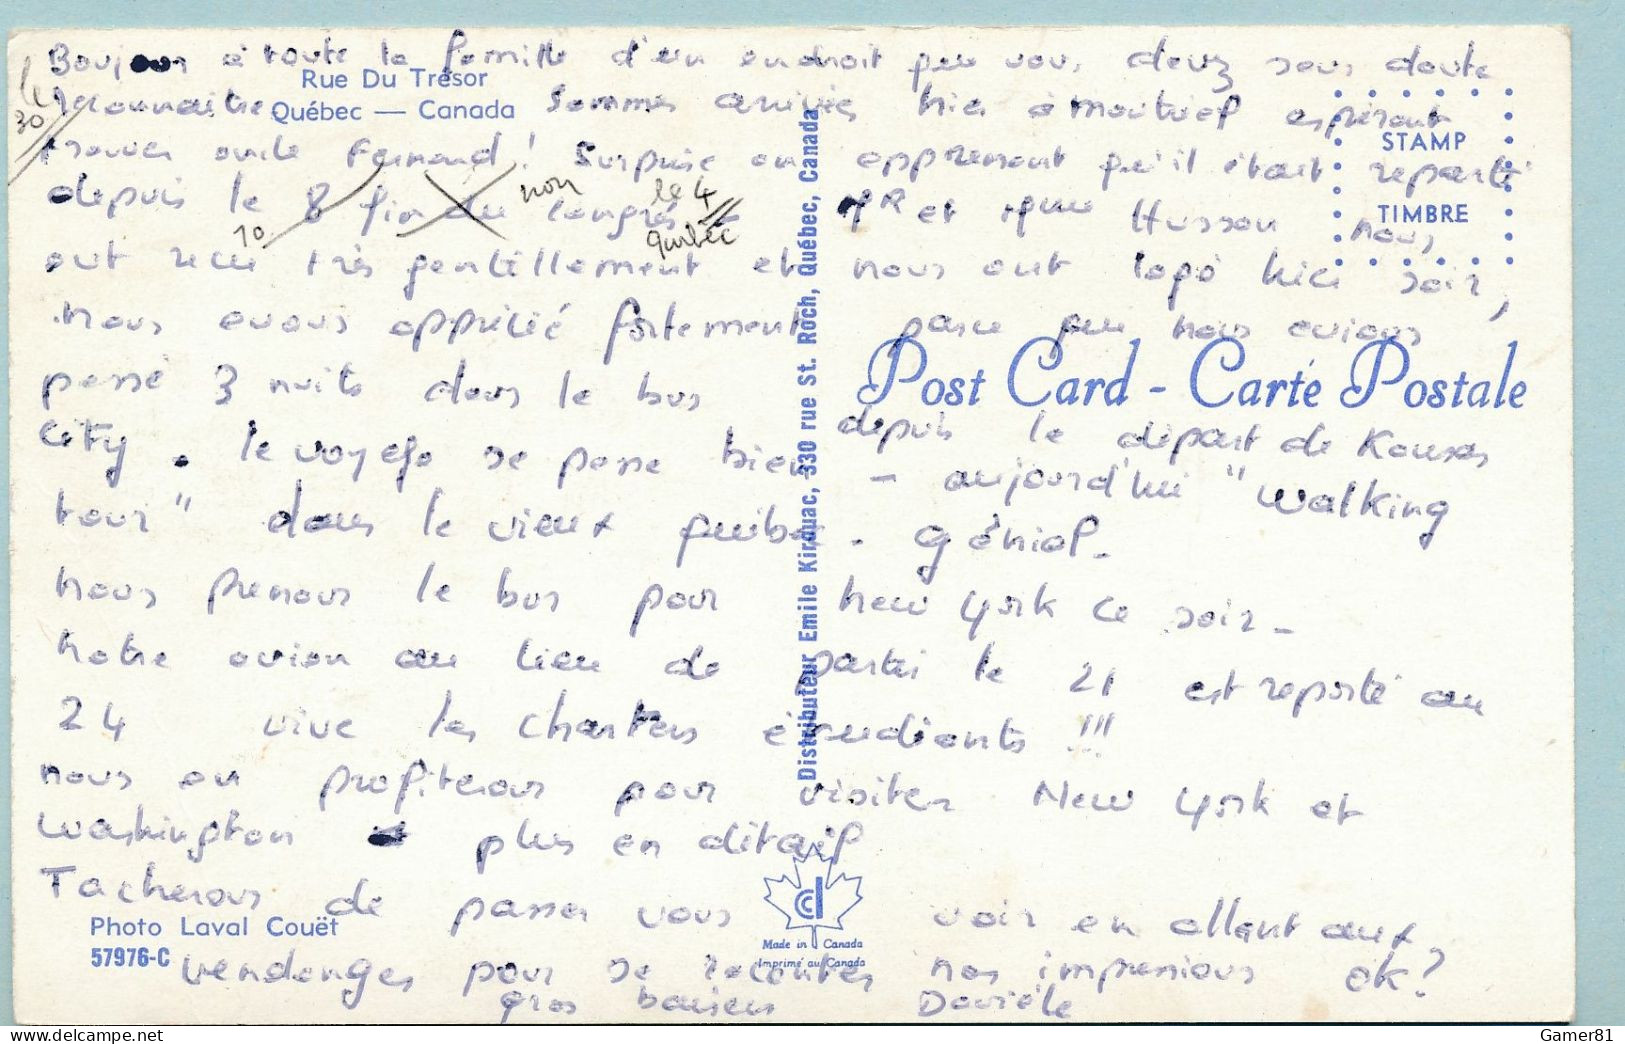 Bonjour à toute la famille d'un endroit que vous devez sans doute
Rue Du Trésor
reconnaitre. Sommes arrivées hier à montréal espérant
Québec — Canada
30
STAMP
trouver oncle Fernand! Surprise en apprenant qu'il était reparti
depuis le 8 fin du congrès Mr et Mme Husson nous
10
non
le 4
Québec
TIMBRE
ont reçu très gentillement et nous ont logé hier soir,
nous avons apprécié fortement parce que nous avions
passé 3 nuits dans le bus depuis le départ de Kansas
Post Card - Carte Postale
City. le voyage se passe bien - aujourd'hui "Walking
tour" dans le vieux québec. Génial.
nous prenons le bus pour New York ce soir -
Notre avion au lieu de partir le 21 est reporté au
24 vive les charters étudiants !!!
nous en profiterons pour visiter New York et
Washington plus en détail
Tacherons de passer vous voir en allant aux
vendanges pour se raconter nos impressions ok?
gros baisers Danièle
Photo Laval Couët
57976-C
Distributeur Emile Kirouac, 330 rue St. Roch, Québec, Canada
Made in Canada
Imprimé au Canada
https://www.delcampe.net
Gamer81